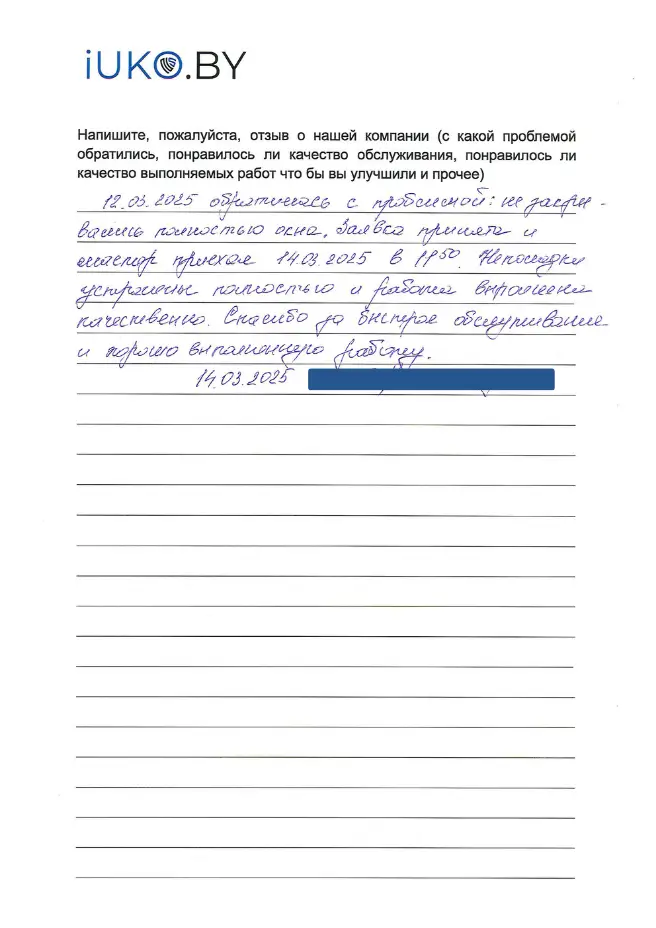 iUKO.BY
Напишите, пожалуйста, отзыв о нашей компании (с какой проблемой
обратились, понравилось ли качество обслуживания, понравилось ли
качество выполняемых работ что бы вы улучшили и прочее)
12.03.2025 обратилась с проблемой: не закры-
вались полностью окна. Заявка принята и
мастер приехал 14.03.2025 в 11⁵⁰. Неполадки
устранены полностью и работа выполнена
качественно. Спасибо за быстрое обслуживание
и хорошо выполненную работу.
14.03.2025